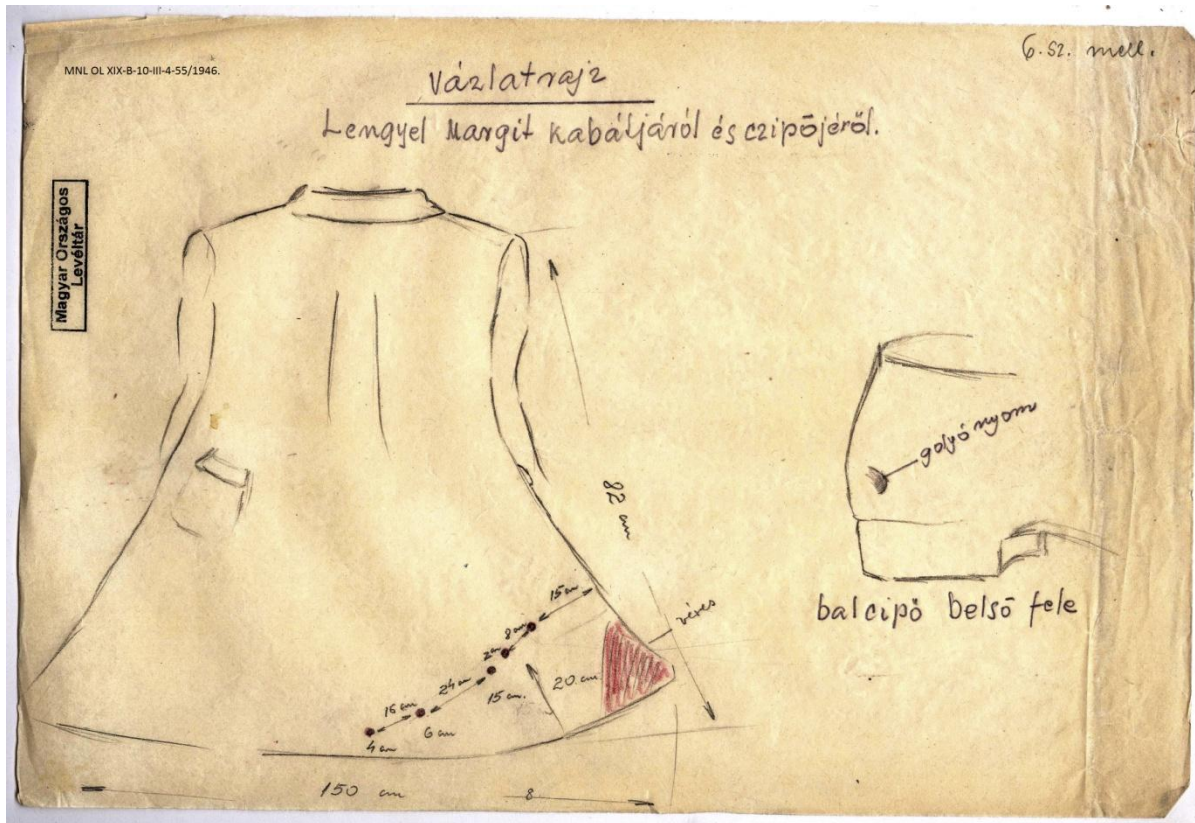 MNL OL XIX-B-10-III-4-55/1946.
6. sz. mell.
Vázlatrajz
Lengyel Margit kabátjáról és czipőjéről.
Magyar Országos
Levéltár
82 cm
golyó nyom
15 cm
8 cm
2 cm
24 cm
16 cm
15 cm.
20 cm.
véres
6 cm
4 cm
balcipő belső fele
150 cm
8